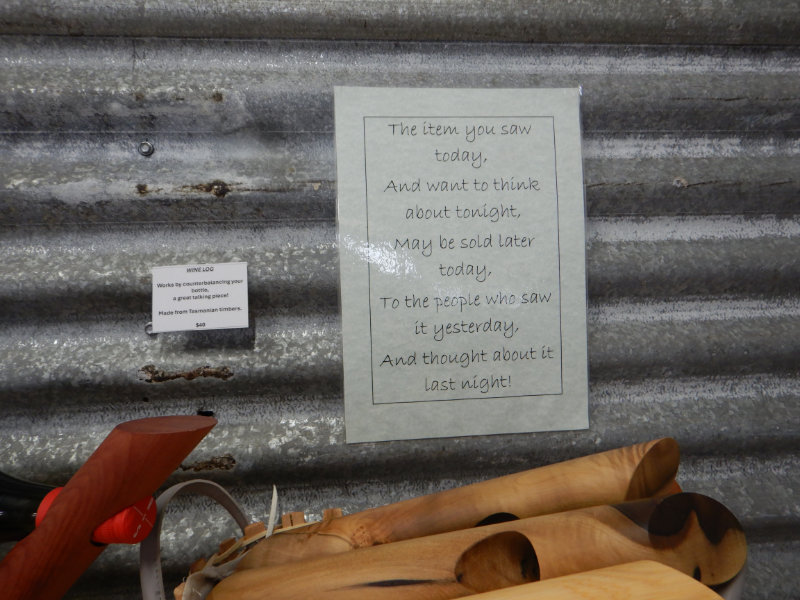 WINE LOG
Works by counterbalancing your
bottle,
a great talking piece!
Made from Tasmanian timbers.
$40
The item you saw
today,
And want to think
about tonight,
May be sold later
today,
To the people who saw
it yesterday,
And thought about it
last night!